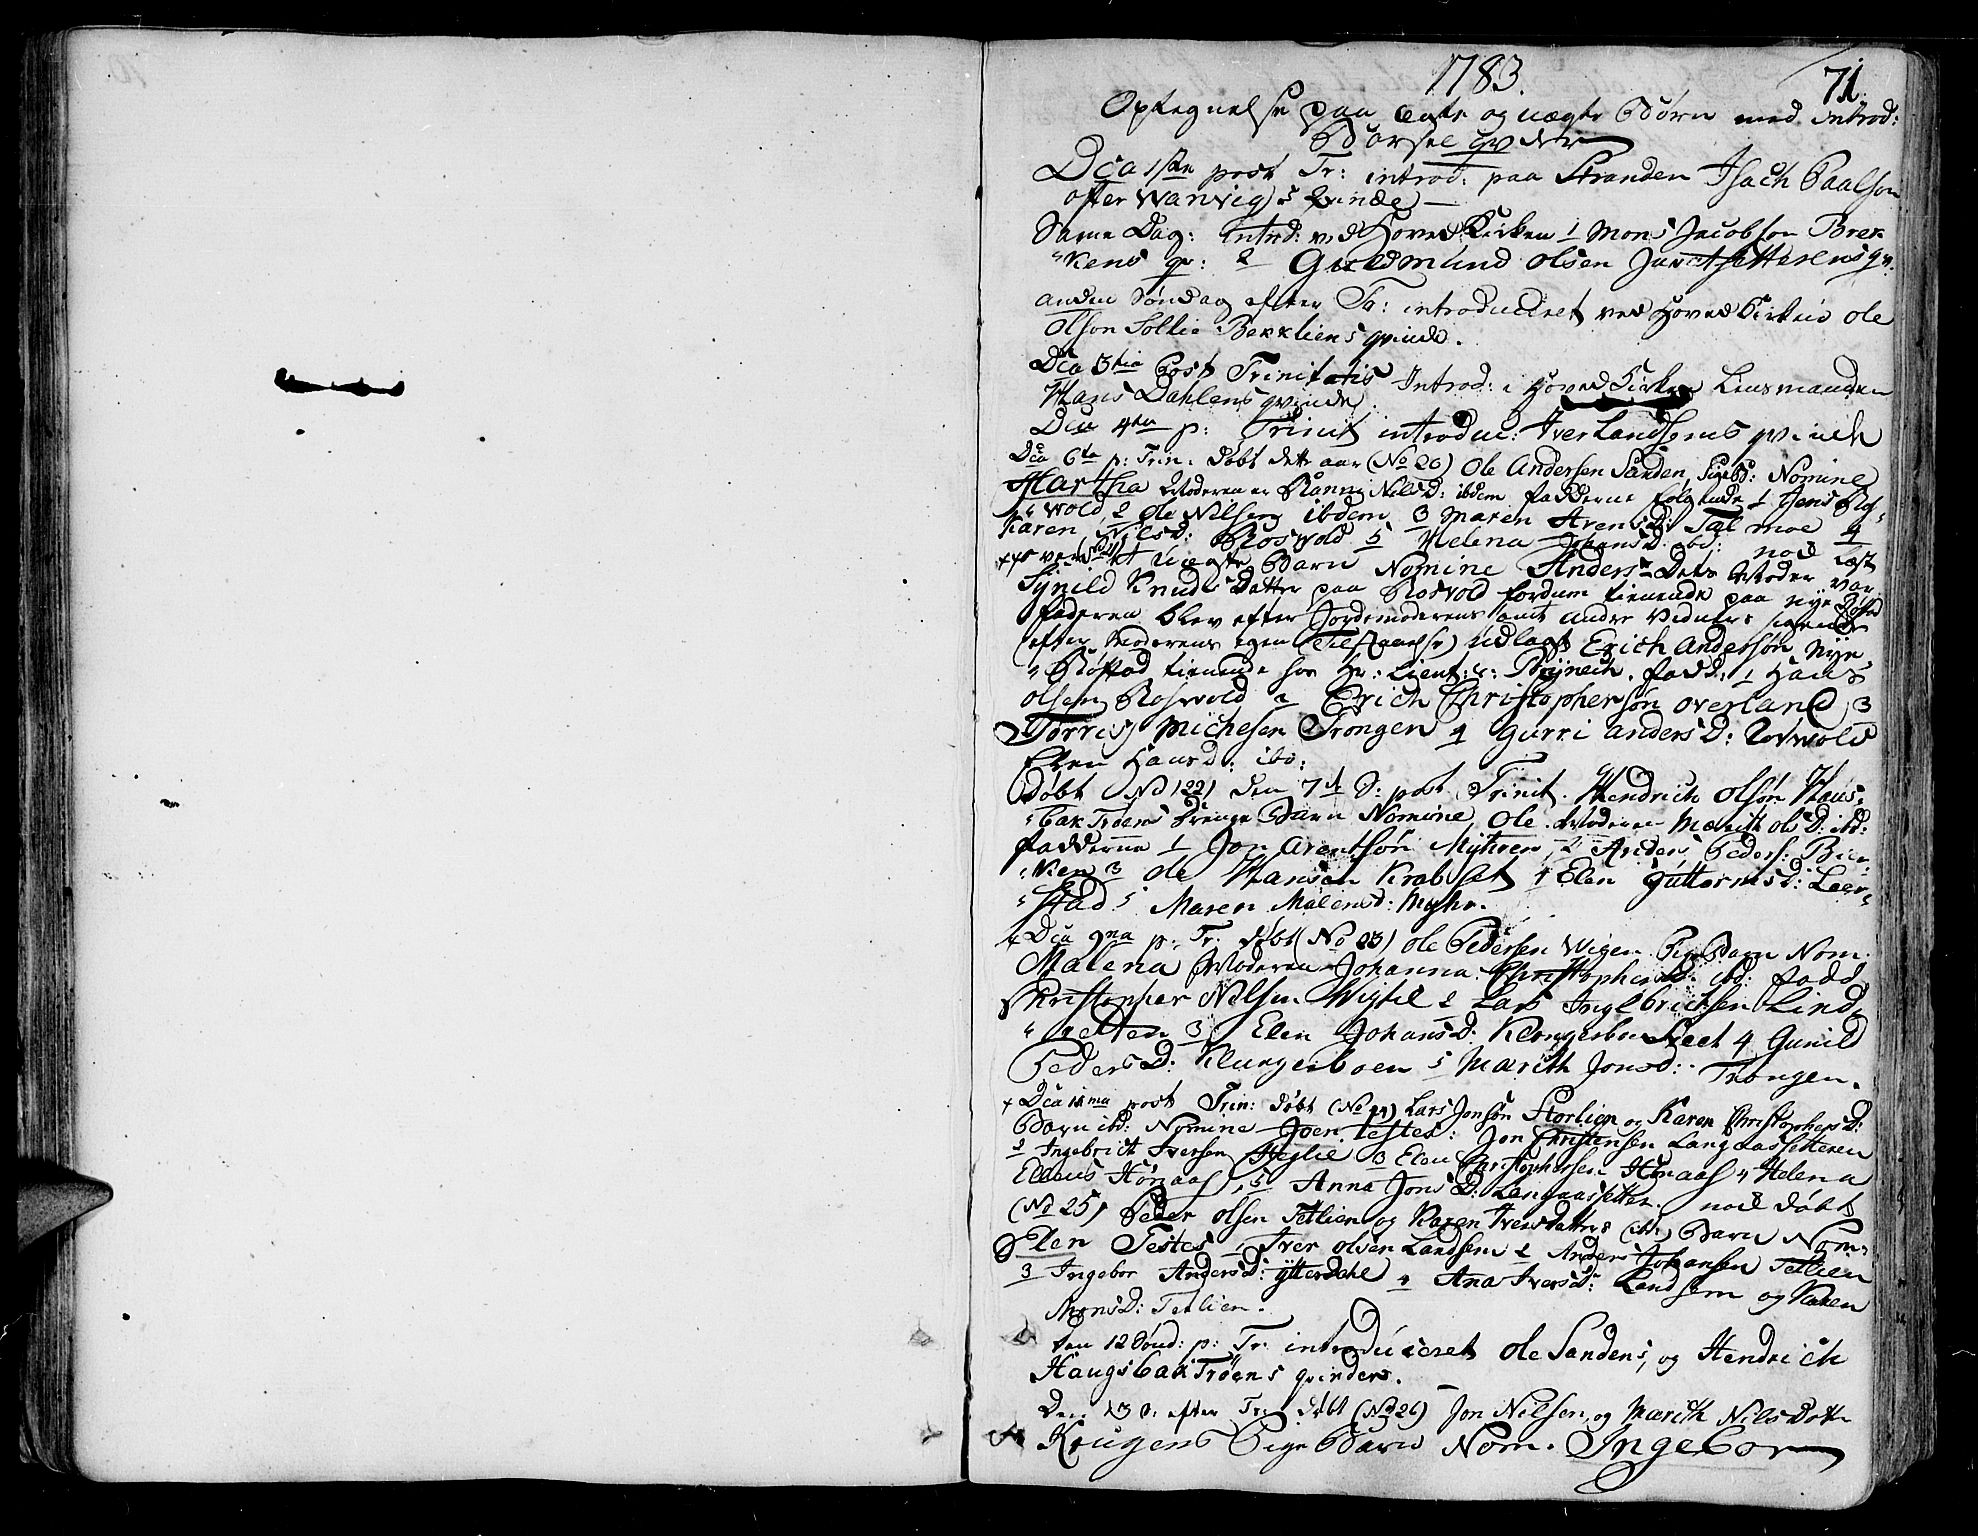 1783.
71.
Optegnelse paa ægte og uægte Børn med introd:
Barsel qvder
Dca 1ste post Tr: introd: paa Stranden Isach Paalson
ofter Warvig)s Qvinde) —
Same Dag: introd: ved Hoved Kirken 1 Mons Jacobson Brek
"kens qv: 2 Guldmund Olsen Juretsetterens qv.
anden Søndag efter Tr: introduceret ved Hoved Kirken Ole
Olson Sollie Bekkliens qvinde.
Dca 3tia Post Trinitatis Introd: i Hoved Kirken Lensmanden
Hans Dahlens qvinde.
Dca 4ta p: Trinit introduc: Iver Landsems qvinde
Dca 6ta p: Trin: døbt dette aar (No 20) Ole Andersen Sanden, Nomine
Martha Moderen er Ranni Nilsd: ibdem fadderne følgende 1 Jens Ros-
"wold, 2 Ole Nilsen ibdem 3 Maren Arensd: Talmoe 4
Karen Nilsd: Roswold 5 Helena Johansd: ibd: nock løst
(No 21) et uægte Barn Nomine Anders Dets Moder var
Synild Knuds Datter paa Rosvold fordum tienende paa Nye Røstad
faderen blev efter Jordemoderens samt andre Vidners
(efter Moderens egen Tilstaaelse) udlagt Erich Anderson Nye
"Røstad tienende hos Hr: Lieut: v: fadd: 1 Hans
Olsen Roswold 2 Erich Christopherson Overland, 3
Torris Michelsen Trongen 4 Gurri Andersd: Roswold
Elen Hansd: ibd:
Døbt (No 22) den 7de S: post Trinit. Hendrich Olsøn Haus-
"bak Trøens Drenge Barn Nomine Ole. Moderen Marith Olsd: ibd:
fadderne 1 Jon Arentsøn Myhren, 2 Anders Peders:
"ken 3 Ole Hansen Krabset 4 Elen Guttormsd: Leer-
"stad 5 Maren Malensd: Myhr.
+ Dca 9na p: Tr: døbt (No 23) Ole Pedersen Wigen Pige Barn Nom.
Malena Moderen Johanna Christophersd: ibd: fadd.
Christopher Nilsen Wigtil 2 Lars Ingelbrichsen Lind-
"setten 3 Elen Johansd: Klongerboe Sleet 4 Gunild
Pedersd: Klungerboen 5 Marith Jonsd: Trongen.
+ Dca 11ma post Trin: døbt (No 24) Lars Jonsøn Storlien og Karen Christophersd:
Barn ibd: Nomine Joen. Testes: Jon Christensen Langaassetteren
2 Ingebricht Iversen Heglie 3 Elen Christophersen Hønaas 4 Helena
Ellens Hønaas, 5 Anna Jonsd: Langaassetter. nock døbt
(No 25) Peder Olsen Tetlien og Karen Iversdatters (ibd:) Barn Nom:
Elen Testes 1 Iver Olsen Landsem 2 Anders Johansen Tetlien
3 Ingebor Andersd: Ytterdahl 4 Ana Iversd: Landsem og Karen
Monsd: Tetlien.
den 12 Sønd: p: Tr: introduceret Ole Sandens, og Hendrich
Haugsbak Trøens qvinder.
Den 13 S: efter Tr: døbt (No 26) Jon Nilsen og Marith Nilsdatter
Krugens Pige Barn Nom. Ingebor